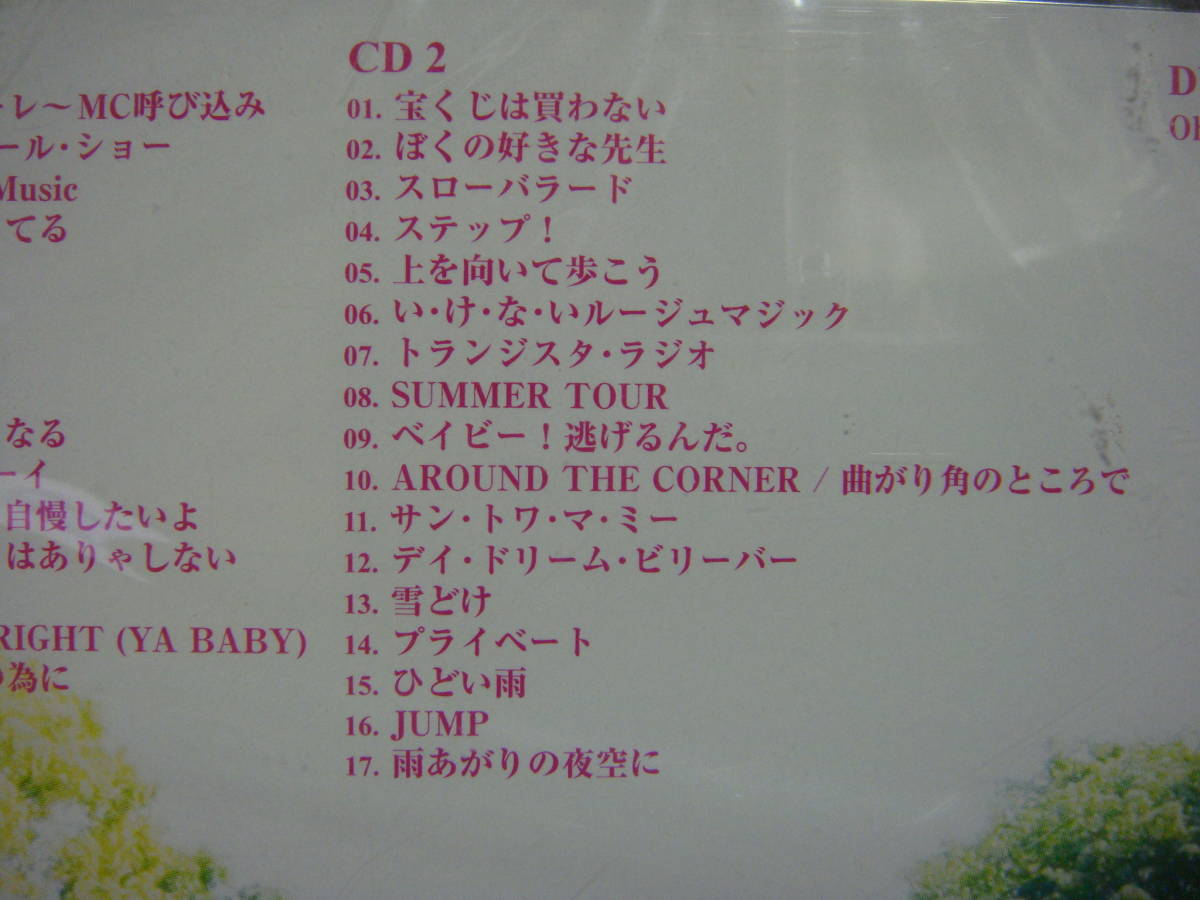 レ〜MC呼び込み
ール・ショー
Music
てる
なる
ーイ
自慢したいよ
はありゃしない
RIGHT (YA BABY)
の為に
CD 2
01. 宝くじは買わない
02. ぼくの好きな先生
03. スローバラード
04. ステップ!
05. 上を向いて歩こう
06. い・け・な・いルージュマジック
07. トランジスタ・ラジオ
08. SUMMER TOUR
09. ベイビー!逃げるんだ。
10. AROUND THE CORNER / 曲がり角のところで
11. サン・トワ・マ・ミー
12. デイ・ドリーム・ビリーバー
13. 雪どけ
14. プライベート
15. ひどい雨
16. JUMP
17. 雨あがりの夜空に